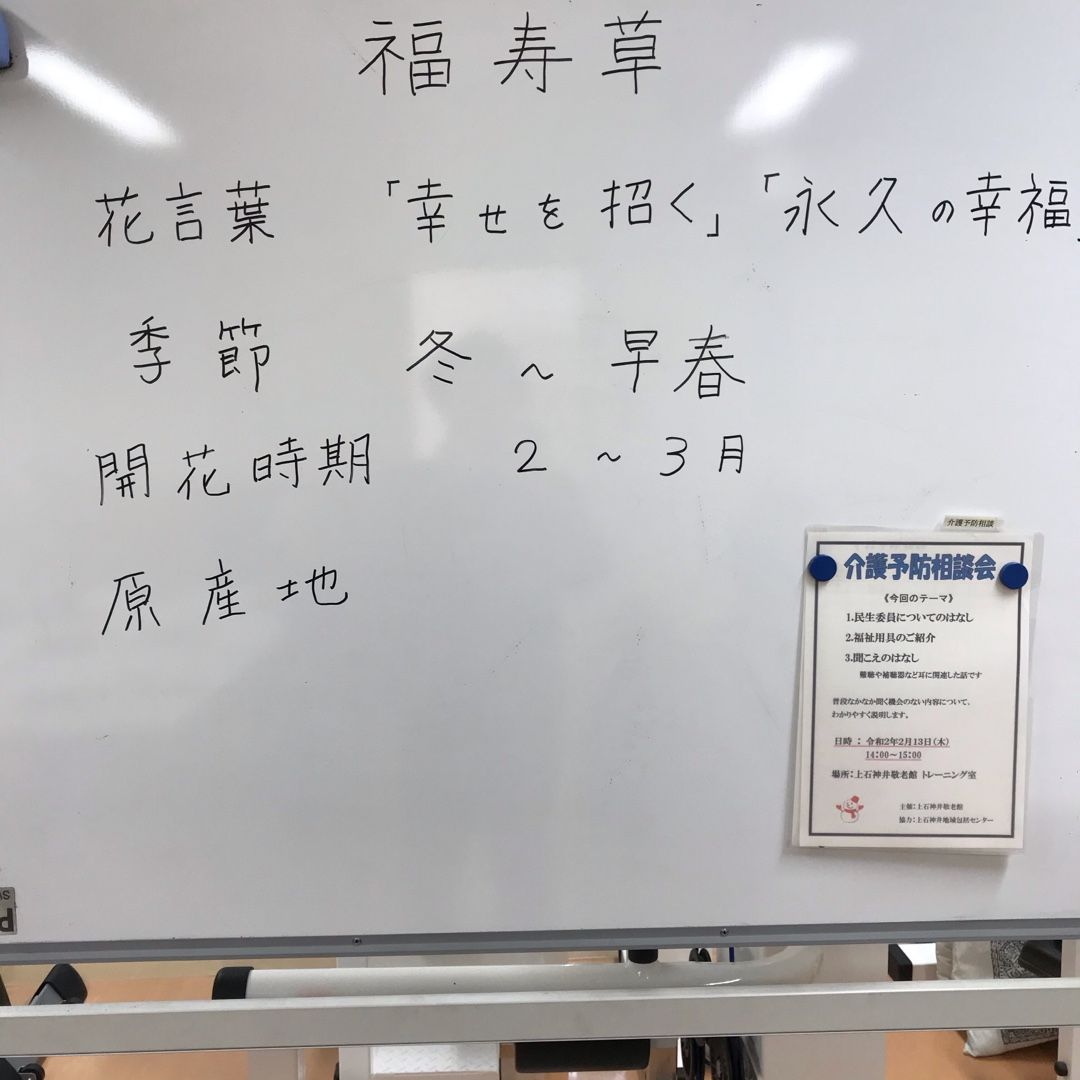 福寿草
花言葉 「幸せを招く」「永久の幸福」
季節 冬～早春
開花時期 2～3月
原産地
介護予防相談
介護予防相談会
《今回のテーマ》
1.民生委員についてのはなし
2.福祉用具のご紹介
3.聞こえのはなし
難聴や補聴器など耳に関連した話です
普段なかなか聞く機会のない内容について、
わかりやすく説明します。
日時：令和2年2月13日(木)
14:00～15:00
場所：上石神井敬老館 トレーニング室
主催：上石神井敬老館
協力：上石神井地域包括センター